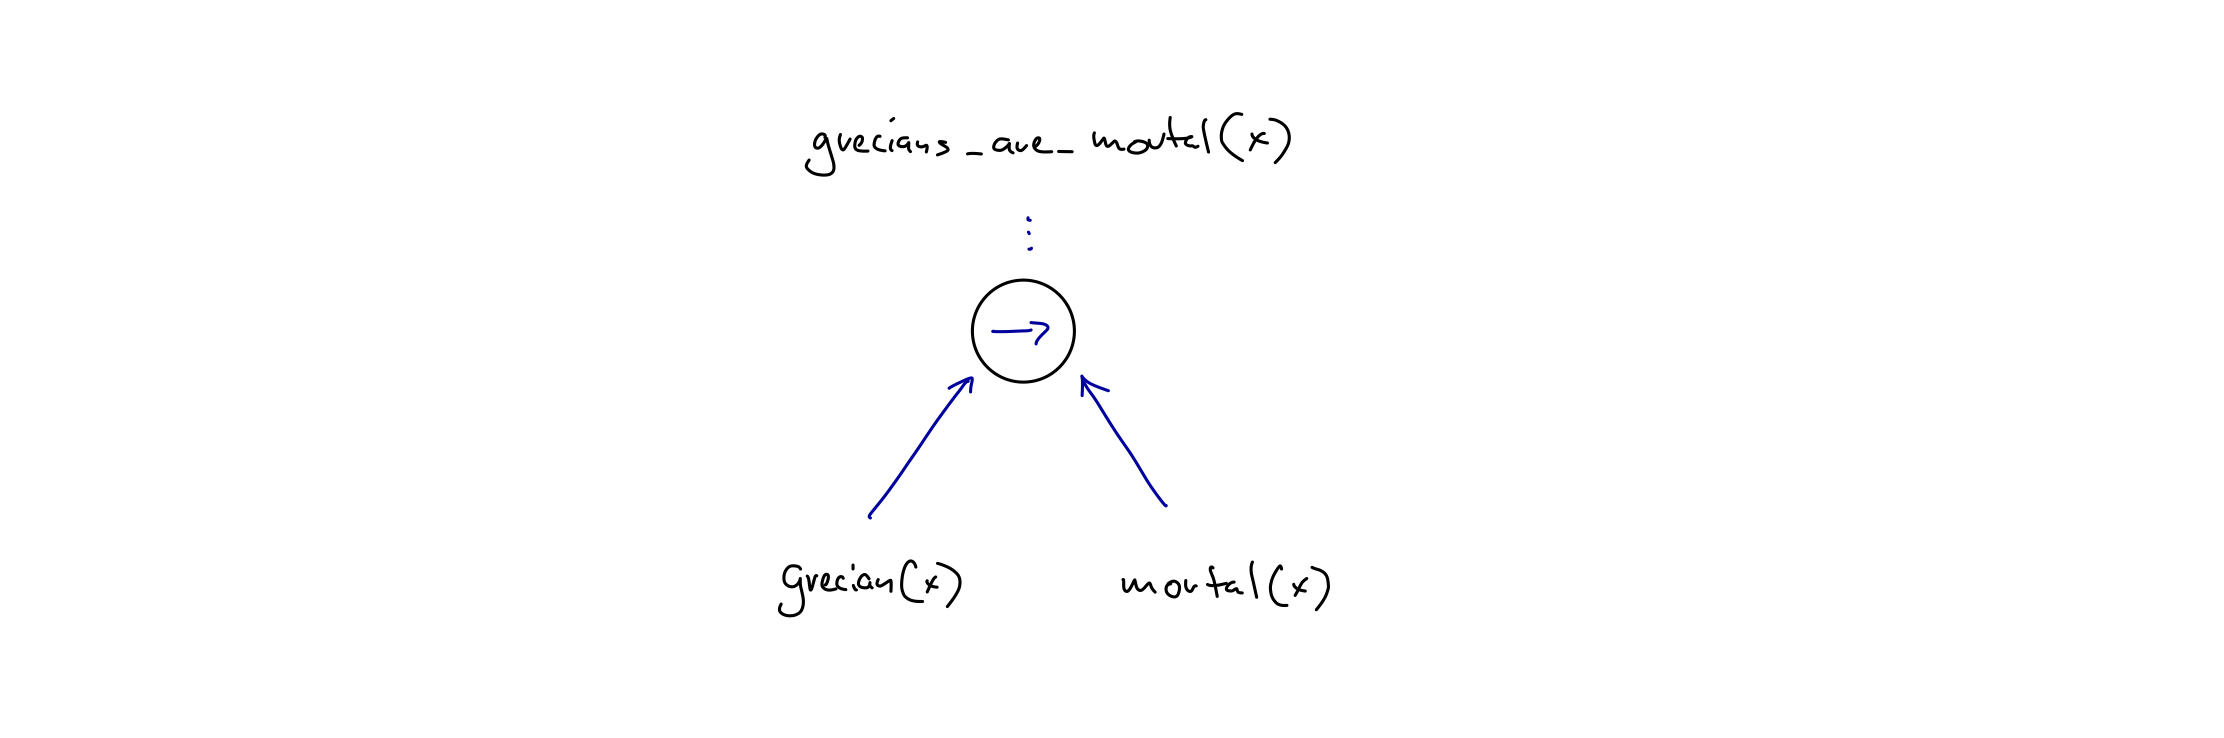 grecians_are_mortal(x)
→
grecian(x) mortal(x)